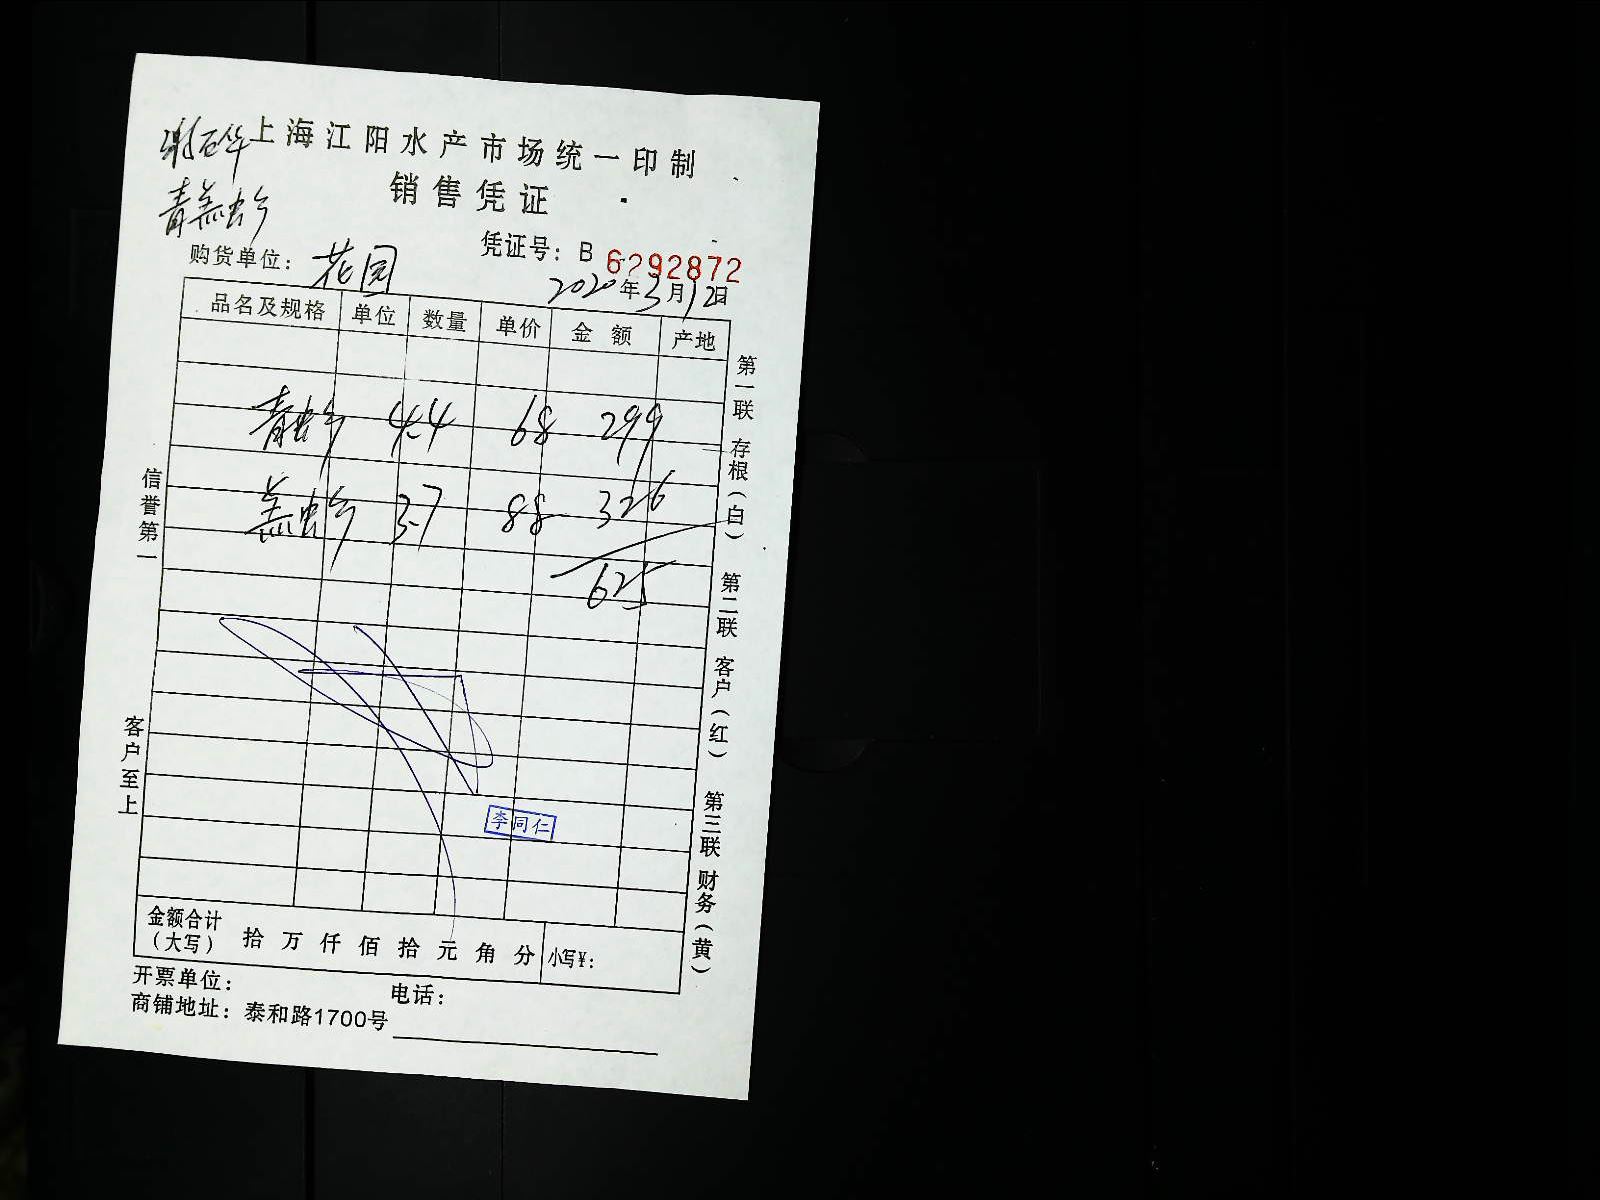 上海江阳水产市场统一印制
销售凭证
青羔虾
凭证号：B 6292872
购货单位：花园
2020年3月12日
品名及规格 单位 数量 单价 金额 产地
青虾 4.4 68 299
羔虾 3.7 88 326
625
李同仁
金额合计（大写） 拾 万 仟 佰 拾 元 角 分 小写¥：
开票单位： 电话：
商铺地址：泰和路1700号
信誉第一
客户至上
第一联 存根（白） 第二联 客户（红） 第三联 财务（黄）